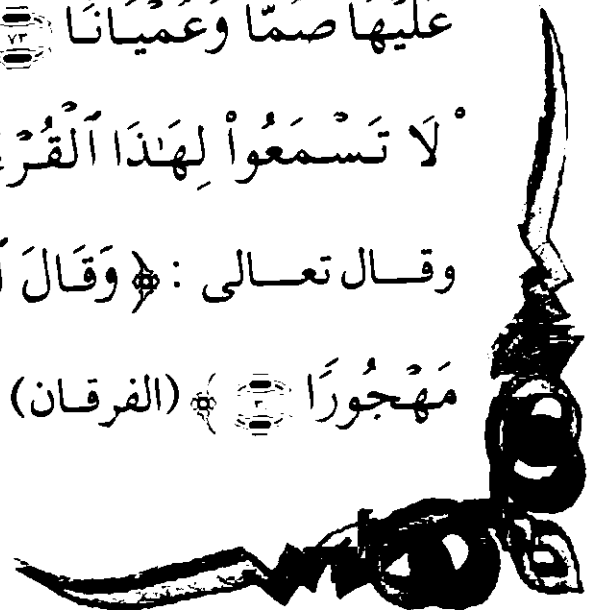 عَلَيْهَا صُمًّا وَعُمْيَانًا ٧٣
لَا تَسْمَعُوا۟ لِهَٰذَا ٱلْقُرْ
وقـــال تعـــالى : ﴿ وَقَالَ
مَهْجُورًا ٣ ﴾ (الفرقان)